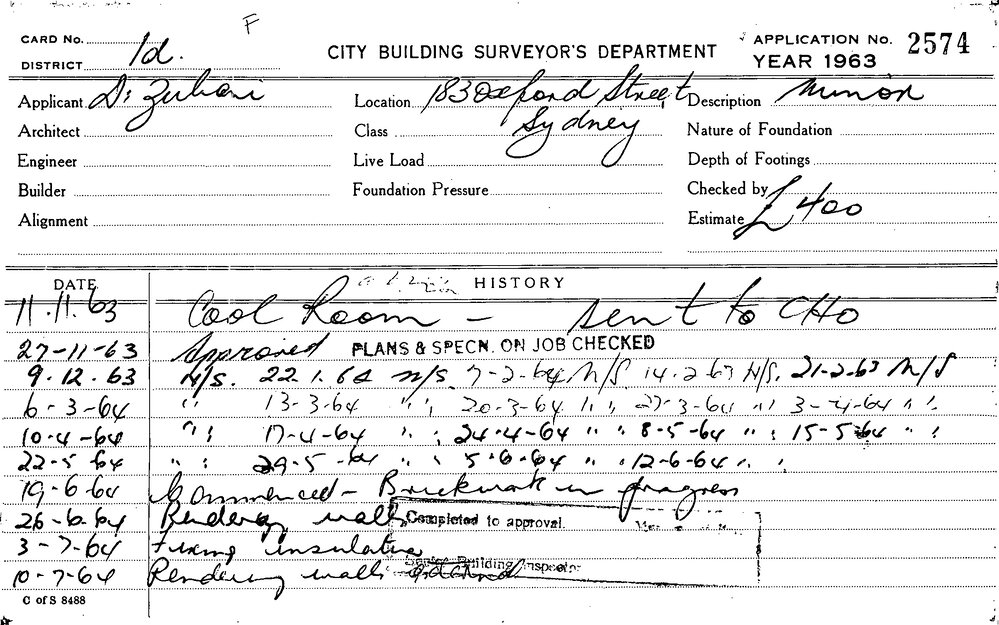 F
CARD No.
DISTRICT 1d.
CITY BUILDING SURVEYOR'S DEPARTMENT
APPLICATION No. 2574
YEAR 1963
Applicant Di Zuliani
Location 183 Oxford Street
Sydney
Description Minor
Architect
Class
Nature of Foundation
Engineer
Live Load
Depth of Footings
Builder
Foundation Pressure
Checked by
Alignment
Estimate £400
DATE
HISTORY
11.11.63 Cool Room - sent to CHO
27-11-63 Approved PLANS & SPECN. ON JOB CHECKED
9.12.63 N/S. 22.1.64 N/S. 7-2-64 N/S 14-2-63 N/S. 21-2-63 N/S
6-3-64 " 13-3-64 " ; 20-3-64 " ; 27-3-64 " ; 3-4-64 " .
10-4-64 " ; 17-4-64 " ; 24-4-64 " ; 8-5-64 " ; 15-5-64 " ;
22-5-64 " ; 29-5-64 " ; 5-6-64 " ; 12-6-64 " ;
19-6-64 Commenced - Brickwork in progress
26-6-64 Rendering walls
Completed to approval.
3-7-64 Fixing insulation
Senior Building Inspector
10-7-64 Rendering walls
C of S 8488